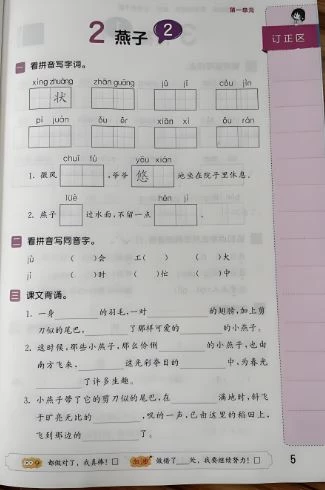 第一单元
2 燕子 2
订正区
一 看拼音写字词。
xíng zhuàng zhān guāng jù jí còu jìn
状
pí juàn ǒu ěr xiān xì ǒu rán
chuī fú yōu xián
1. 微风 ,爷爷 悠 地坐在院子里休息。
lüè hén jì
2. 燕子 过水面,不留一点 。
二 看拼音写同音字。
jù ( )会 工( ) ( )大
jí ( )时 ( )忙 ( )中
三 课文背诵。
1. 一身 的羽毛,一对 的翅膀,加上剪
刀似的尾巴, 了那样可爱的 的小燕子。
2. 这时候,那些小燕子,那么伶俐 的小燕子,也由
南方飞来, 这光彩夺目的 中,为春光
了许多生趣。
3. 小燕子带了它的剪刀似的尾巴,在 满地时,斜飞
于旷亮无比的 ,叽的一声,已由这里的稻田上,
飞到那边的 了。
都做对了,我真棒!□ 做错了 处,我要继续努力!□
5